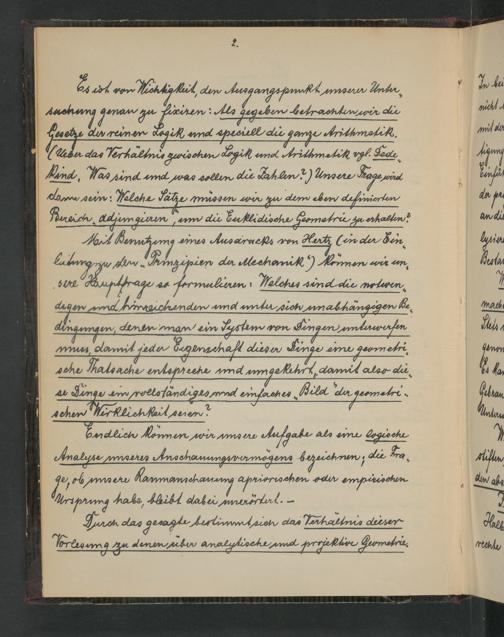 2.
Es ist von Wichtigkeit, den Ausgangspunkt unserer Unter-
suchung genau zu fixiren: Als gegeben betrachten wir die
Gesetze der reinen Logik und speciell die ganze Arithmetik.
(Ueber das Verhältnis zwischen Logik und Arithmetik vgl. Dede-
kind, Was sind und was sollen die Zahlen?) Unsere Frage wird
dann sein: Welche Sätze müssen wir zu dem eben definirten
Bereich „adjungieren", um die Euklidische Geometrie zu erhalten?
Mit Benutzung eines Ausdrucks von Hertz (in der Ein-
leitung zu den „Prinzipien der Mechanik") können wir un-
sere Hauptfrage so formulieren: Welches sind die notwen-
digen und hinreichenden und unter sich unabhängigen Be-
dingungen, denen man ein System von Dingen unterwerfen
muss, damit jeder Eigenschaft dieser Dinge eine geometri-
sche Thatsache entspreche und umgekehrt, damit also die-
se Dinge ein vollständiges und einfaches „Bild" der geometri-
schen Wirklichkeit seien?
Endlich können wir unsere Aufgabe als eine logische
Analyse unseres Anschauungsvermögens bezeichnen; die Fra-
ge, ob unsere Raumanschauung apriorischen oder empirischen
Ursprung habe, bleibt dabei unerörtert. —
Durch das gesagte bestimmt sich das Verhältnis dieser
Vorlesung zu denen über analytische und projektive Geometrie.